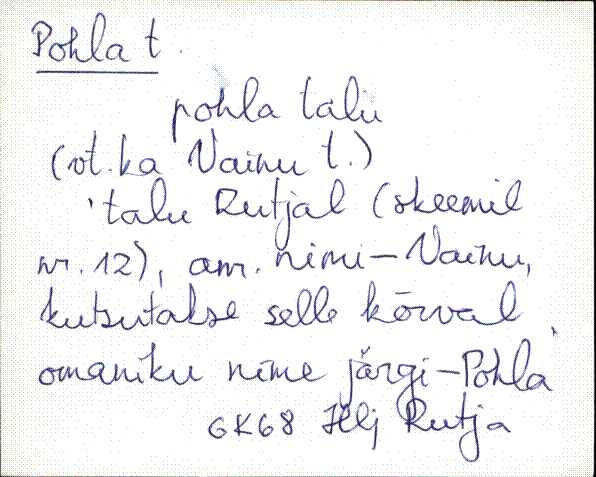 Pohla t.
pohla talu
(vt. ka Vainu t.)
'talu Rutjal (skeemil
nr. 12), am. nimi - Vainu,
kutsutakse selle kõrval
omaniku nime järgi - Pohla'
GK68 Hlj Rutja